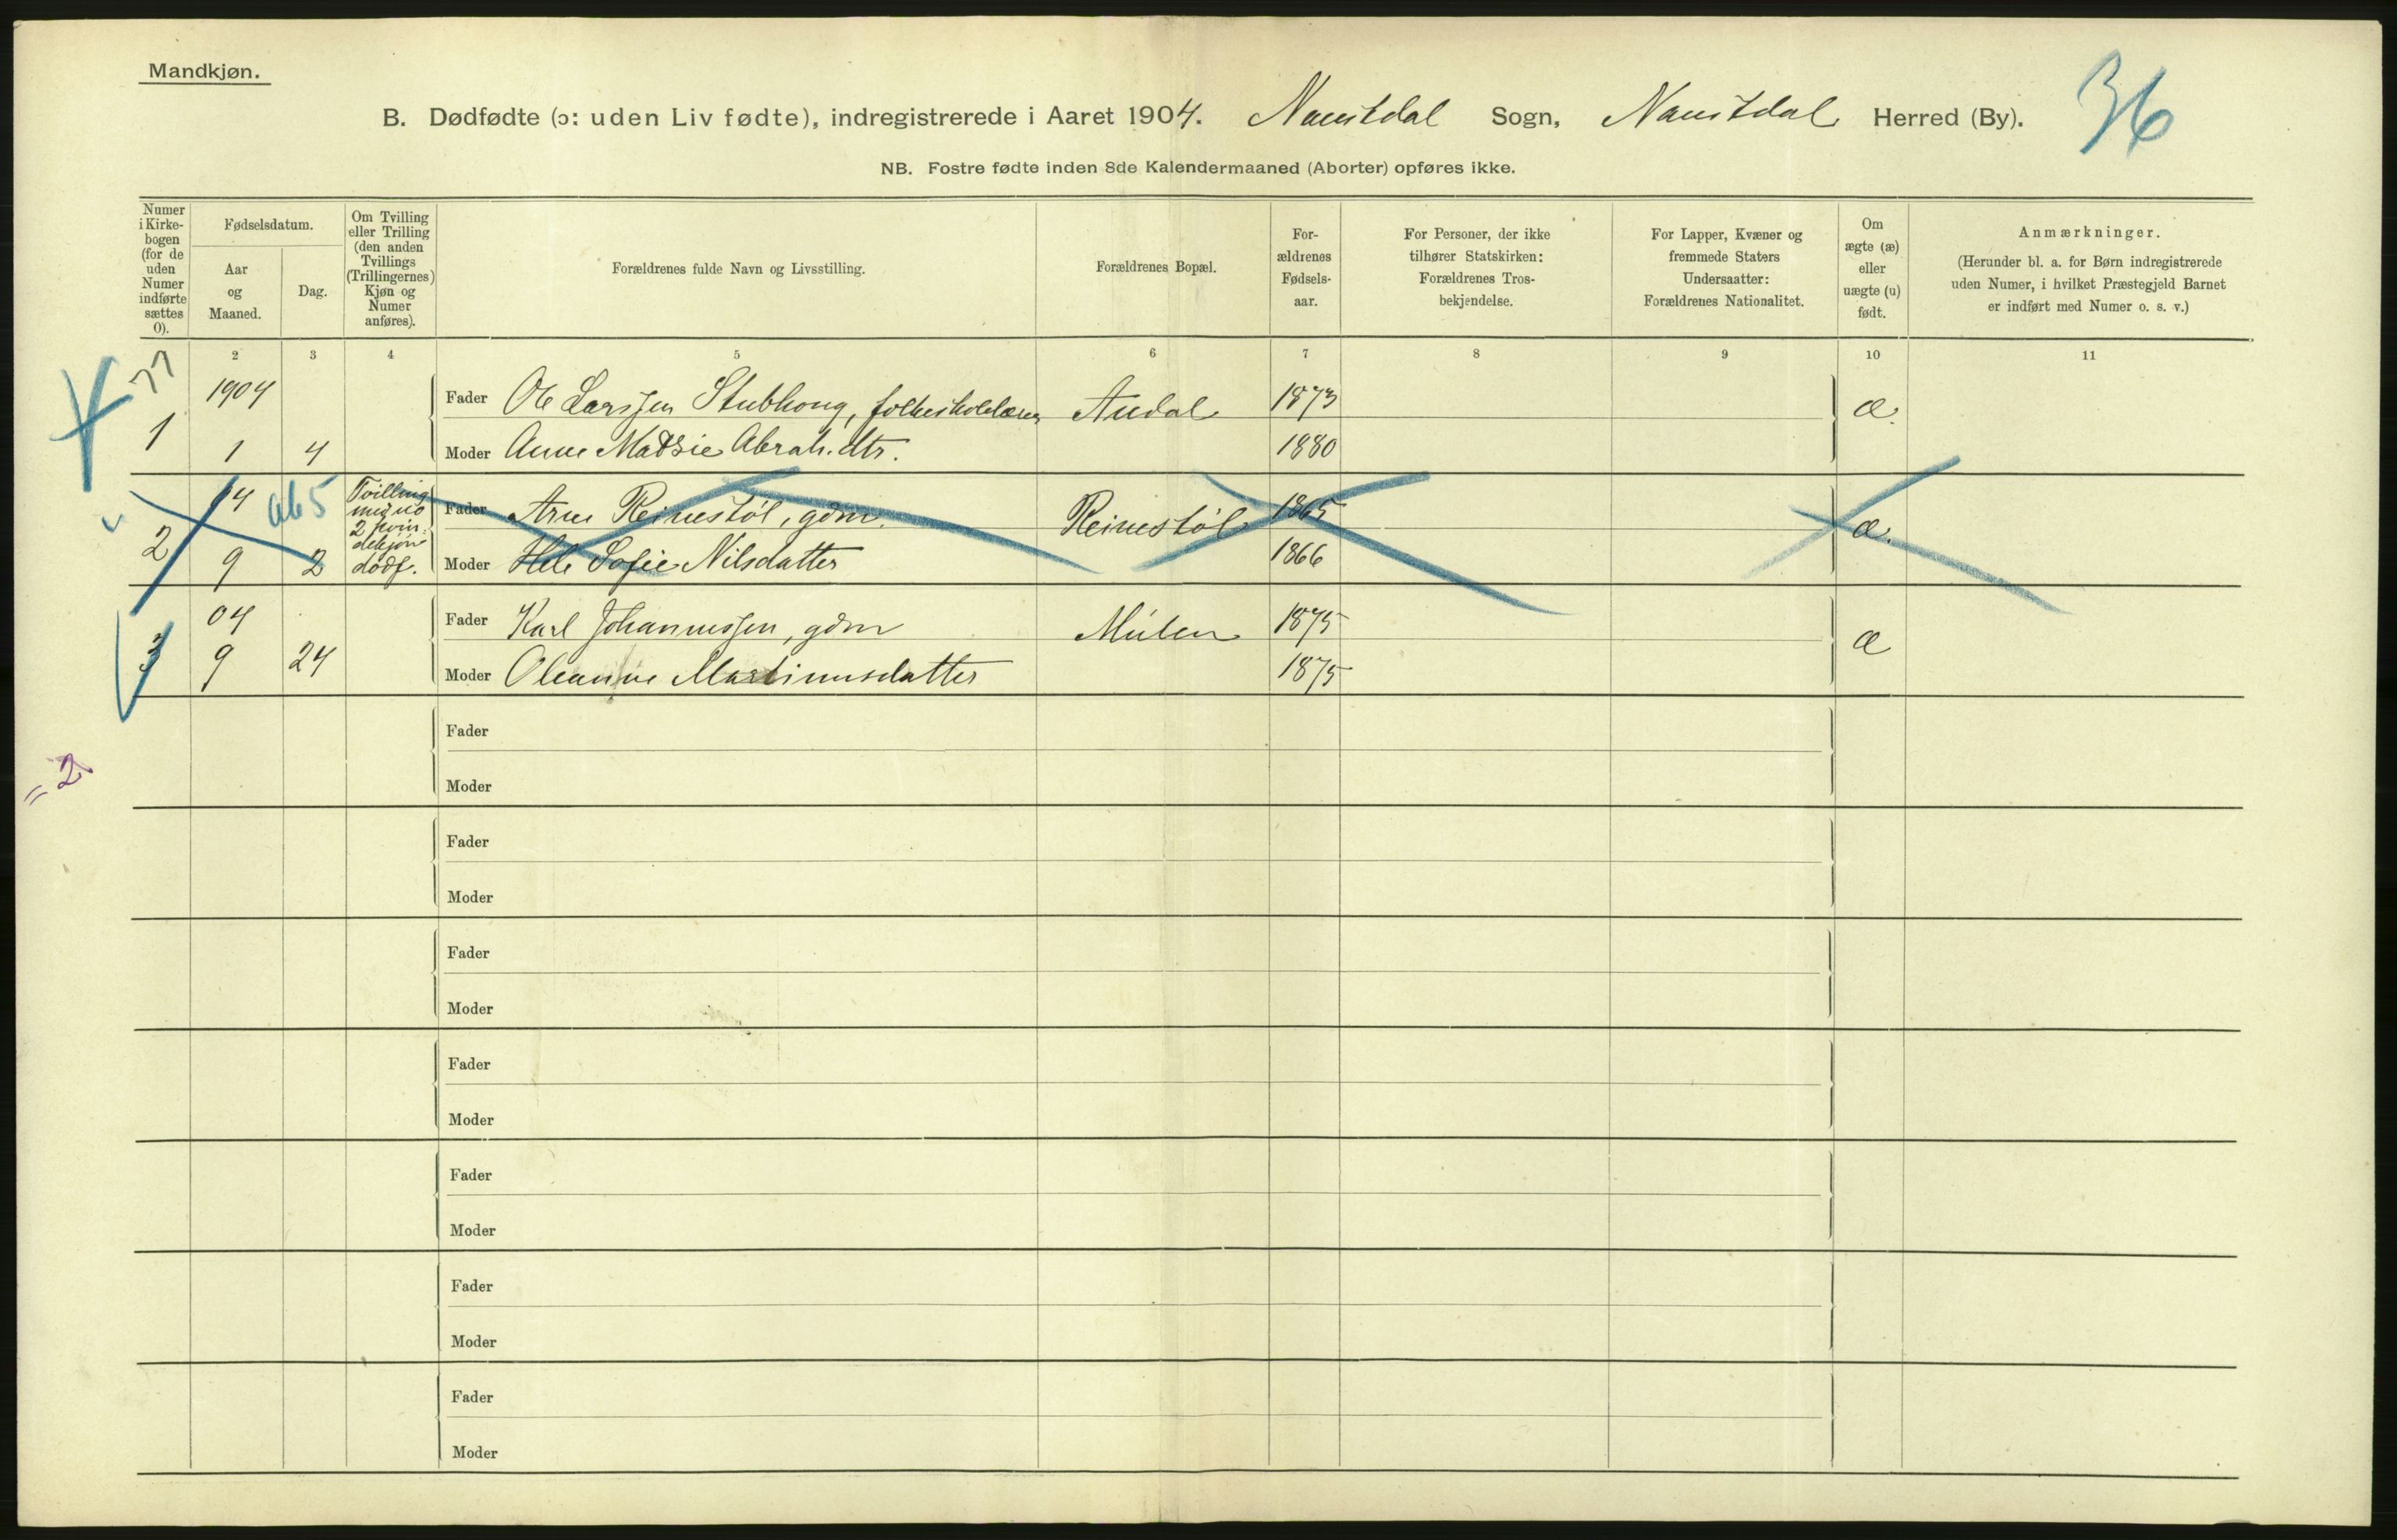 Mandkjøn.
B. Dødfødte (ɔ: uden Liv fødte), indregistrerede i Aaret 1904. Naustdal Sogn, Naustdal Herred (By).
36
NB. Fostre fødte inden 8de Kalendermaaned (Aborter) opføres ikke.
Numer
i Kirke-
bogen
(for de
uden
Numer
indførte
sættes
0).
Fødselsdatum.
Aar
og
Maaned.
Dag.
Om Tvilling
eller Trilling
(den anden
Tvillings
(Trillingernes)
Kjøn og
Numer
anføres).
Forældrenes fulde Navn og Livsstilling.
Forældrenes Bopæl.
For-
ældrenes
Fødsels-
aar.
For Personer, der ikke
tilhører Statskirken:
Forældrenes Tros-
bekjendelse.
For Lapper, Kvæner og
fremmede Staters
Undersaatter:
Forældrenes Nationalitet.
Om
ægte (æ)
eller
uægte (u)
født.
Anmærkninger.
(Herunder bl. a. for Børn indregistrerede
uden Numer, i hvilket Præstegjeld Barnet
er indført med Numer o. s. v.)
2 3 4 5 6 7 8 9 10 11
77
1904
Fader Ole Larssen Stubhoug, folkeskolelærer Audal 1873 æ.
1 1 4 Moder Anne Matsie Abrah.dtr. 1880
04 ab5
Tvilling
med no
2 kvin-
dekjøn
dødf.
Fader Arne Reinestøl, gdm. Reinestøl 1865 æ.
2 9 2 Moder Hele Sofie Nilsdatter 1866
04 Fader Karl Johannessen, gdm Mulen 1875 æ
3 9 24 Moder Oleanne Martinusdatter 1875
Fader
= 2
Moder
Fader
Moder
Fader
Moder
Fader
Moder
Fader
Moder
Fader
Moder
Fader
Moder